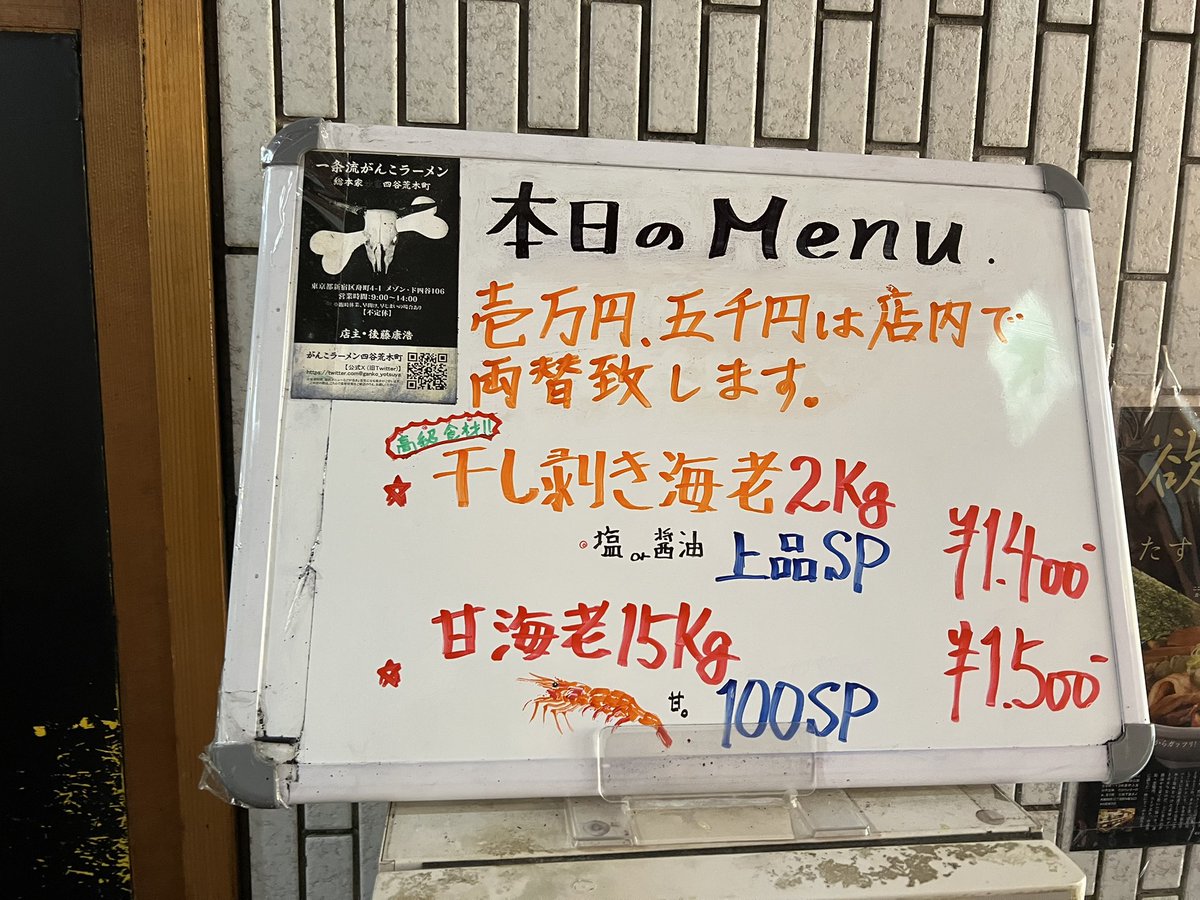 一条流がんこラーメン
総本家 四谷荒木町
東京都新宿区舟町4-1 メゾン・ド四谷106
営業時間:9:00~14:00
【不定休】
店主・後藤康浩
がんこラーメン四谷荒木町
【公式X(旧Twitter)】
https://twitter.com@ganko_yotsuya
本日のMenu.
壱万円、五千円は店内で
両替致します。
高級食材!!
★干し剥き海老2Kg
塩or醤油 上品SP ¥1.400-
★甘海老15Kg
甘。 100SP ¥1.500-
欲
たす